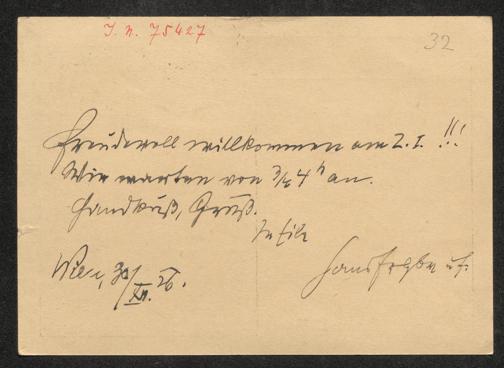 I. N. 75427
32
Freudevoll willkommen am 2. I. !!!
Wir warten von 3/4 4 h an.
Handkuß, Gruß.
In Eile
Wien, 30/XII. 26.